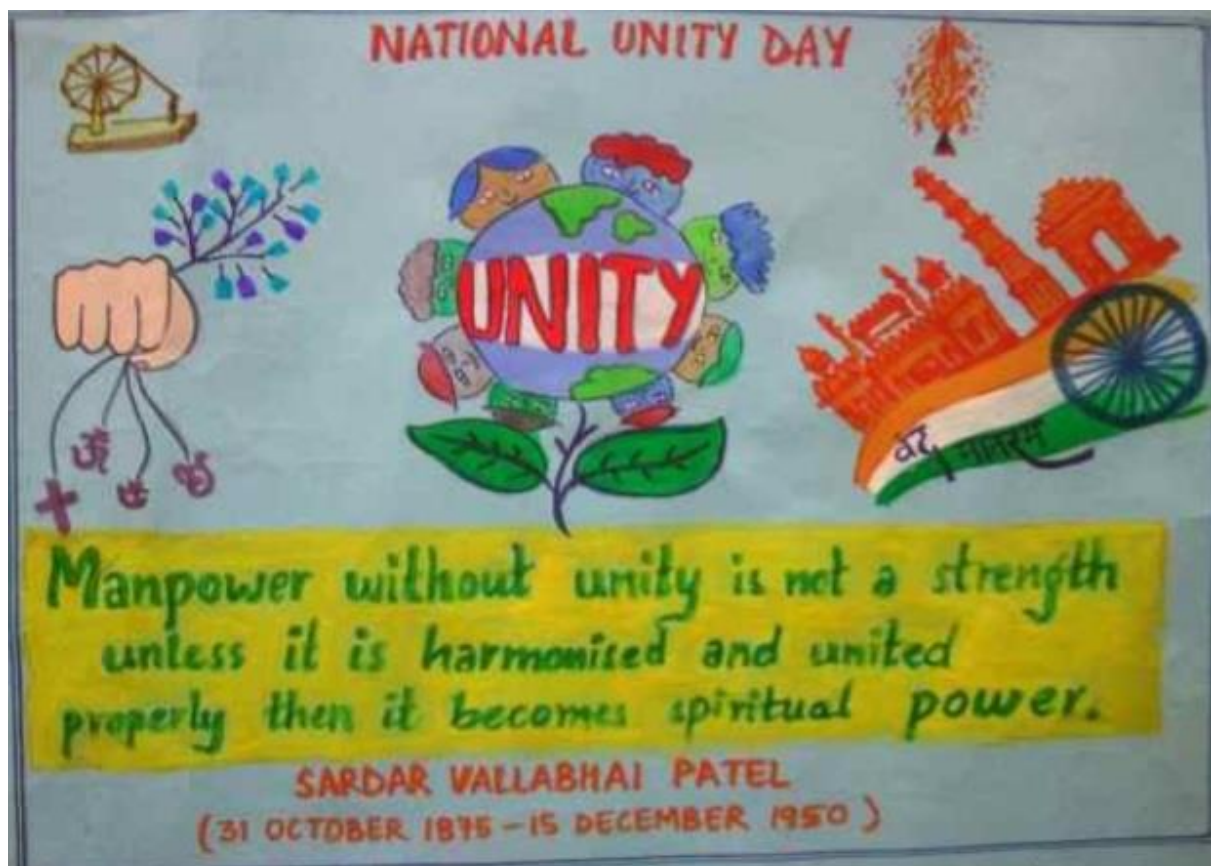 NATIONAL UNITY DAY
UNITY
ॐ
वंदे मातरम
Manpower without unity is not a strength
unless it is harmonised and united
properly then it becomes spiritual power.
SARDAR VALLABHAI PATEL
(31 OCTOBER 1875 - 15 DECEMBER 1950)